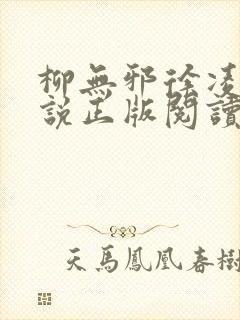 柳無邪徐凌
說正版閱讀
天馬鳳凰春樹